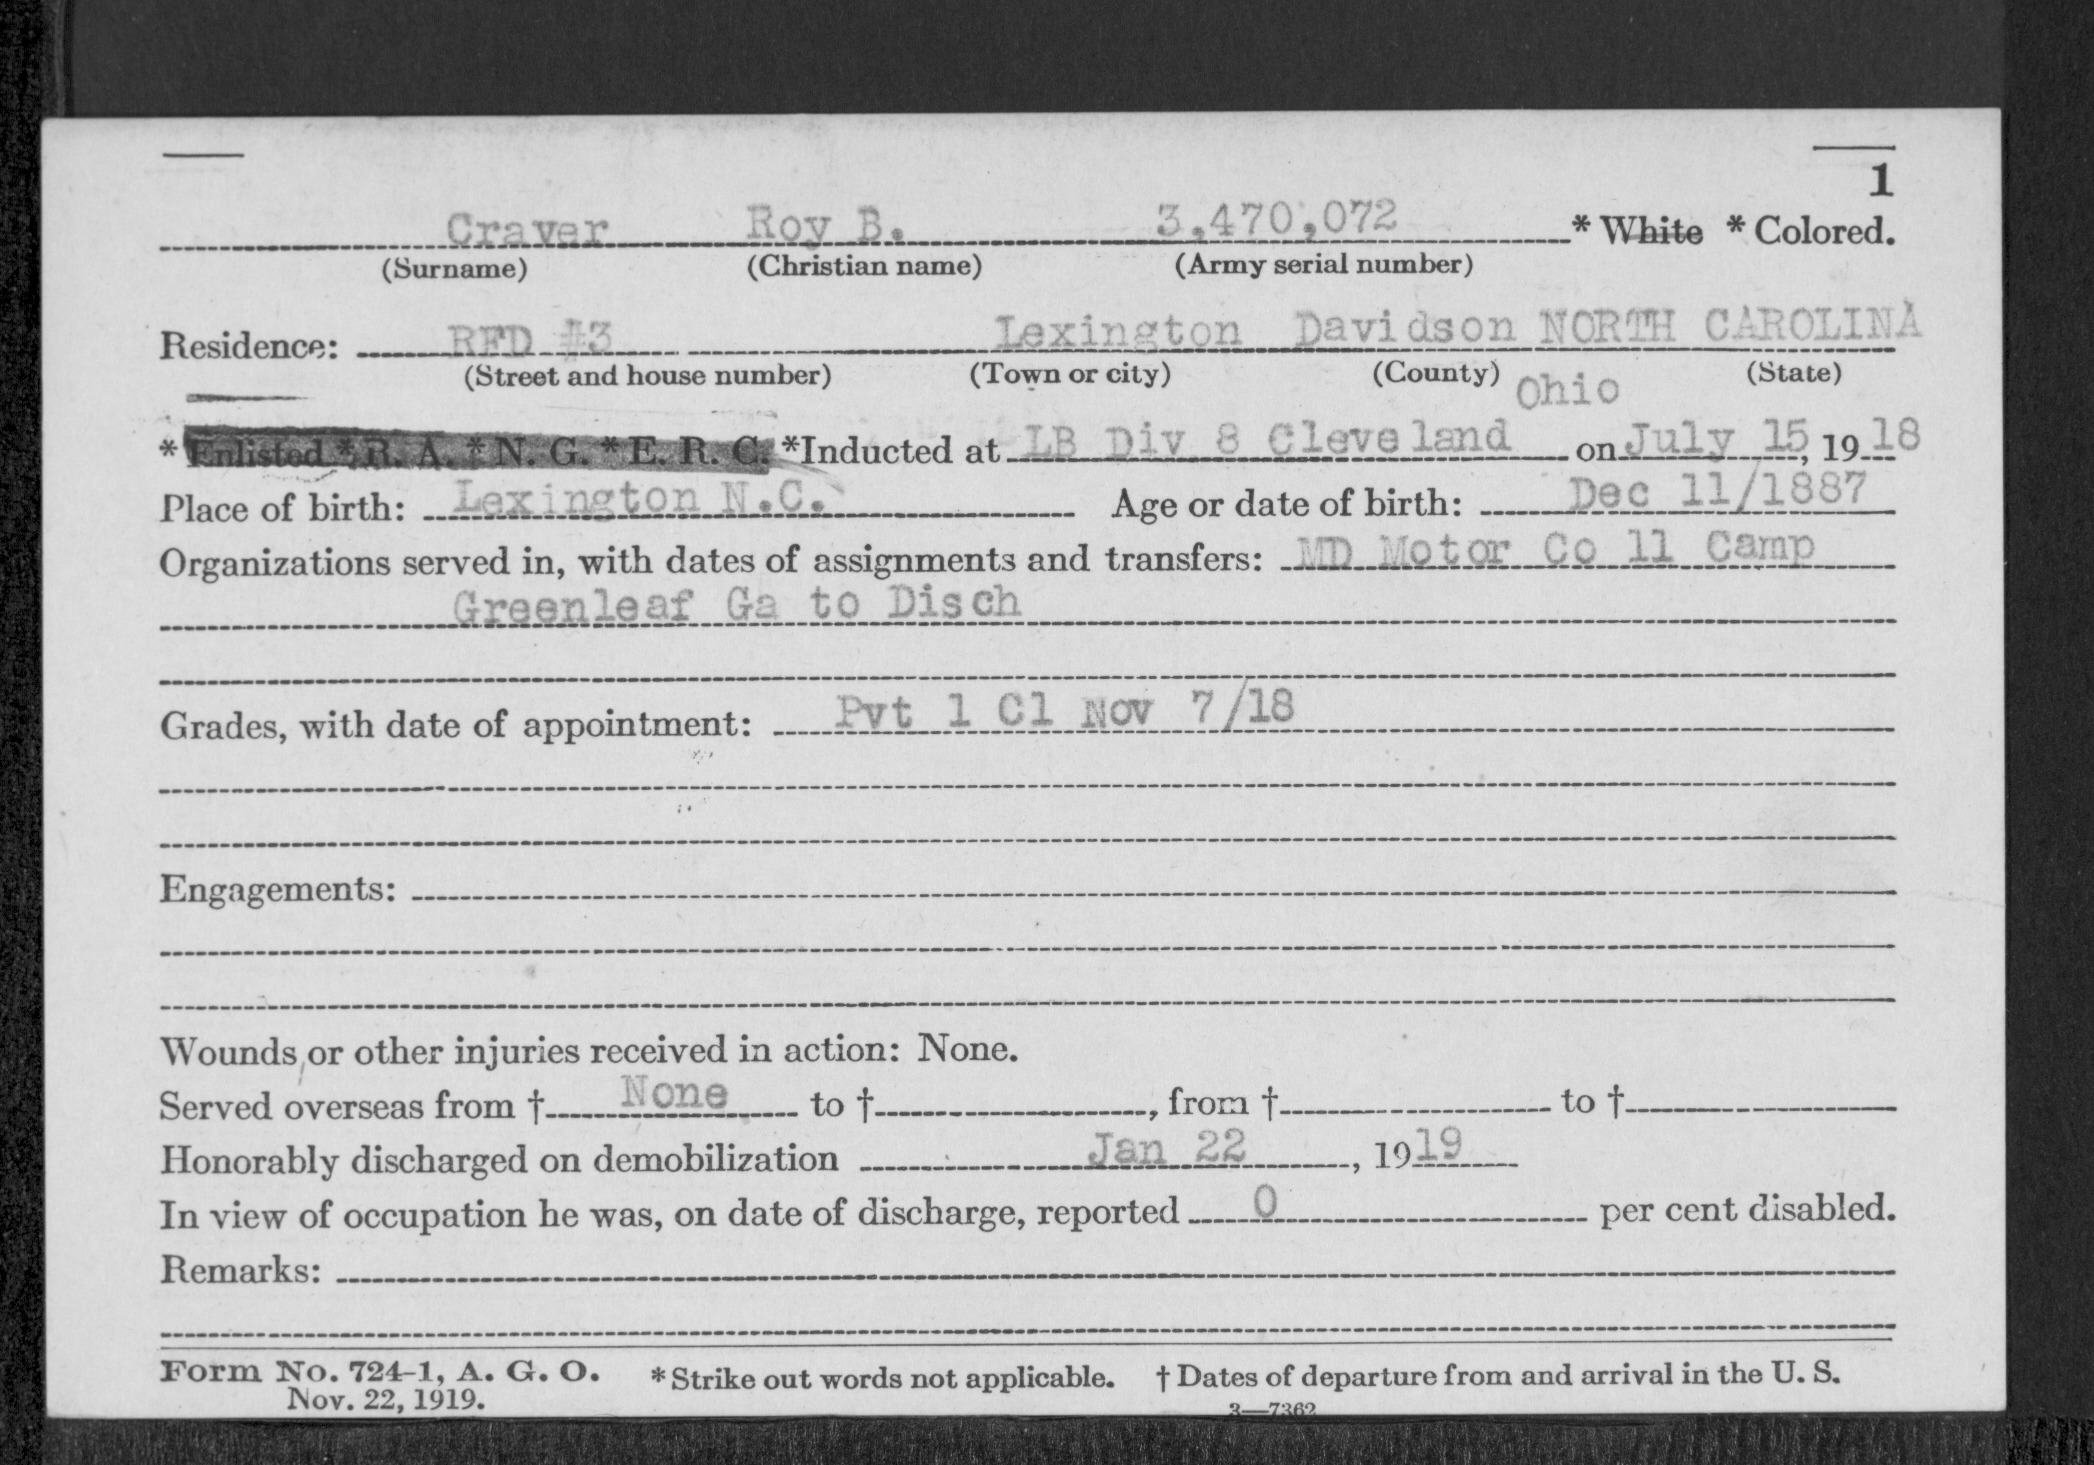 1
Craver Roy B. 3,470,072 * White * Colored.
(Surname) (Christian name) (Army serial number)
Residence: RFD #3 Lexington Davidson NORTH CAROLINA
(Street and house number) (Town or city) (County) (State)
Ohio
* Enlisted * R. A. * N. G. * E. R. C. *Inducted at LB Div 8 Cleveland on July 15, 1918
Place of birth: Lexington N.C. Age or date of birth: Dec 11/1887
Organizations served in, with dates of assignments and transfers: MD Motor Co 11 Camp
Greenleaf Ga to Disch
Grades, with date of appointment: Pvt 1 Cl Nov 7/18
Engagements:
Wounds or other injuries received in action: None.
Served overseas from † None to †, from † to †
Honorably discharged on demobilization Jan 22, 1919
In view of occupation he was, on date of discharge, reported 0 per cent disabled.
Remarks:
Form No. 724-1, A. G. O. *Strike out words not applicable. † Dates of departure from and arrival in the U. S.
Nov. 22, 1919. 3—7362